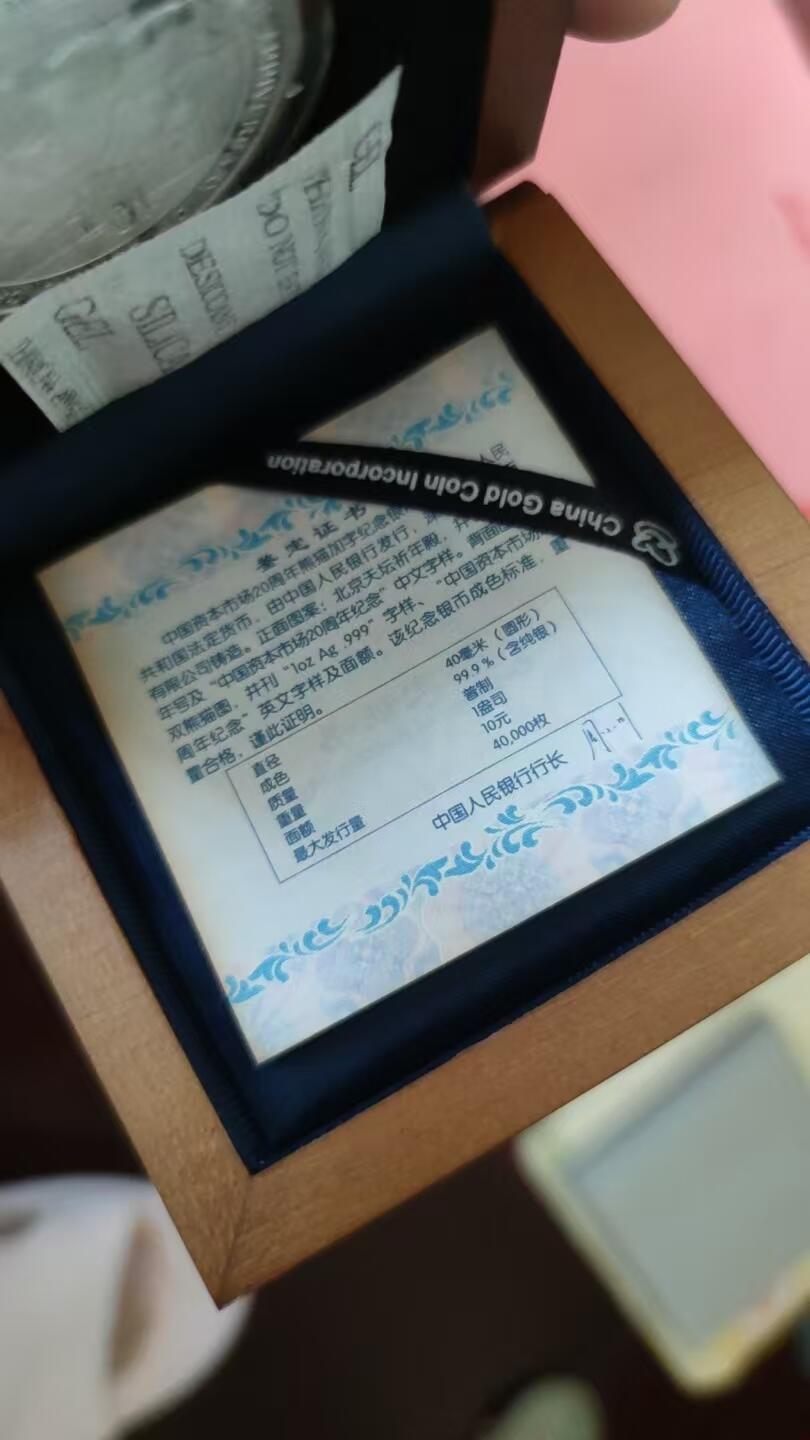 SILICA
China Gold Coin Incorporation
鉴定证书
中国资本市场20周年熊猫加字纪念银
人民
共和国法定货币，由中国人民银行发行，
有限公司铸造。正面图案：北京天坛祈年殿，并
年号及“中国资本市场20周年纪念”中文字样。背面图
双熊猫图，并刊“1oz Ag .999”字样、“中国资本市场
周年纪念”英文字样及面额。该纪念银币成色标准，重
量合格，谨此证明。
直径 40毫米（圆形）
成色 99.9%（含纯银）
质量 普制
重量 1盎司
面额 10元
最大发行量 40,000枚
中国人民银行行长